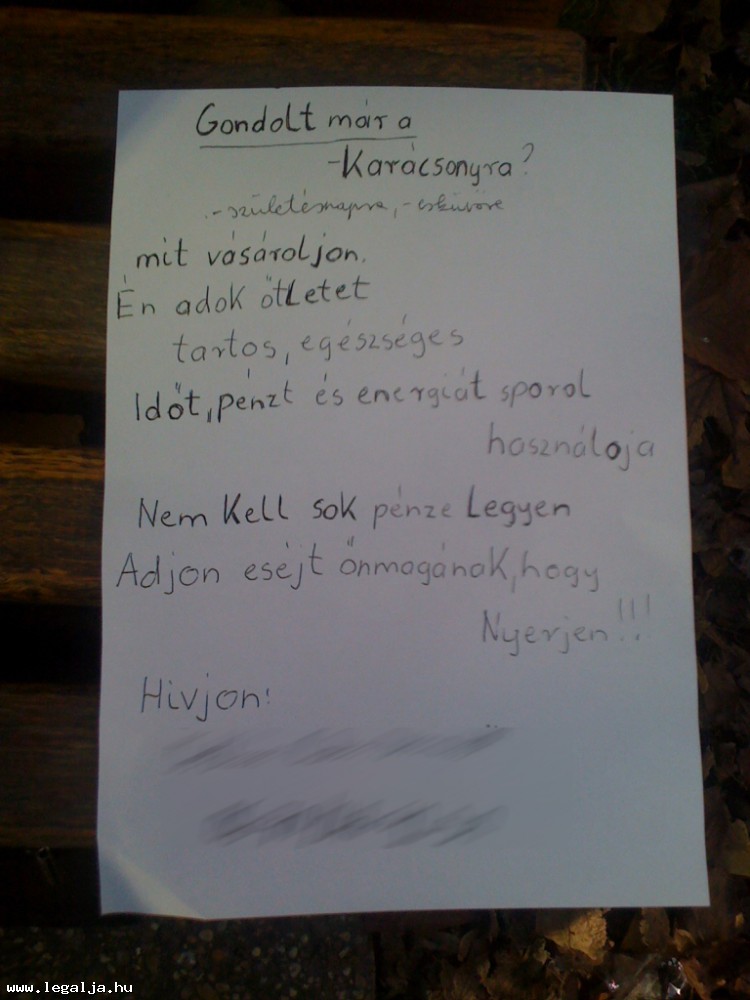 Gondolt már a
-Karácsonyra?
-születésnapra, -esküvőre
mit vásároljon.
Én adok ötletet
tartos, egészséges
Időt, pénzt és energiát sporol
használoja
Nem Kell sok pénze Legyen
Adjon eséjt önmagának, hogy
Nyerjen!!!
Hivjon!
www.legalja.hu